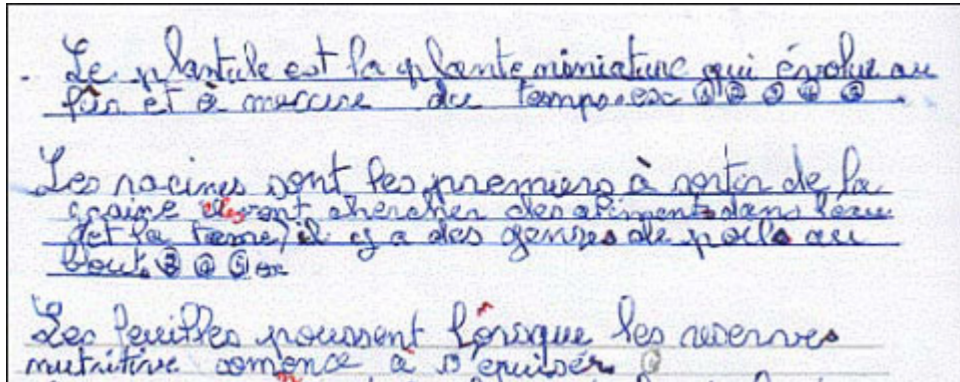 . Le plantule est la plante miniature qui évolue au
fûr et à meccure du temps. ex ① ② ③ ④ ⑤ .
Les racines sont les premiers à sortir de la
graine elles vont chercher des aliments dans l'eau
(et la terre) il y a des genres de poils au
bout. ③ ④ ⑤ ex
Les feuilles poussent lorsque les reserves
nutritive comence à s'épuisér